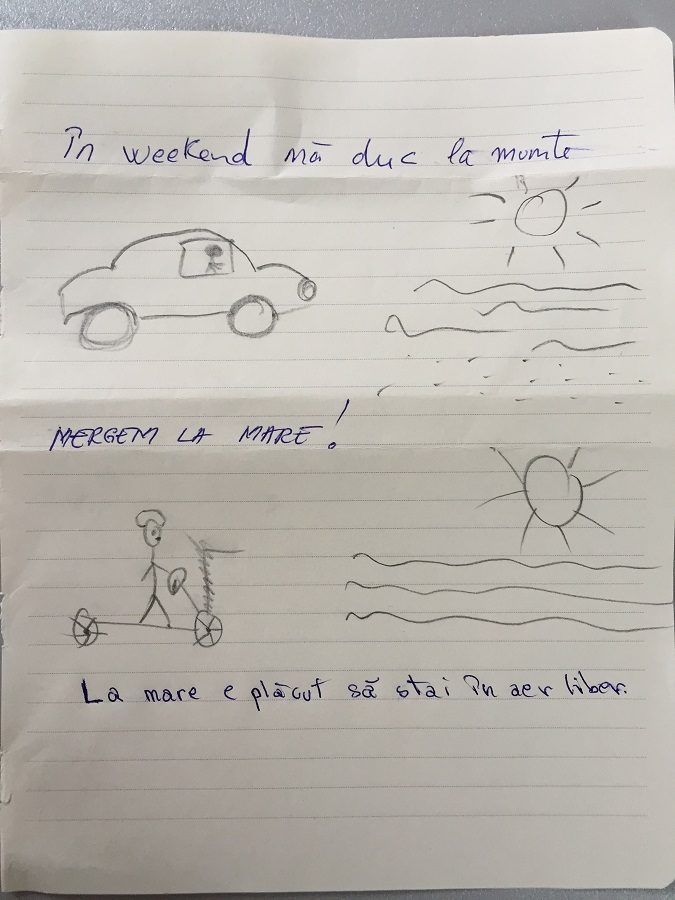 În weekend mă duc la munte
MERGEM LA MARE!
La mare e plăcut să stai în aer liber.